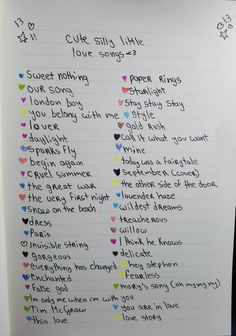 13
13
!!
cute silly little
love songs <3
sweet nothing
our song
london boy
you belong with me
lover
daylight
sparks fly
begin again
cruel summer
the great war
the very first night
snow on the beach
dress
Paris
Invisible string
gorgeous
everything has changed
Enchanted
False god
Im only me when i'm with you
Tim McGraw
this love
paper rings
starlight
stay stay stay
style
gold rush
call it what you want
mine
today was a fairytale
september (cover)
the other side of the door
lavender haze
wildest dreams
treacherous
willow
I think he knows
delicate
hey stephen
Fearless
mary's song (oh my my my)
you are in love
love story